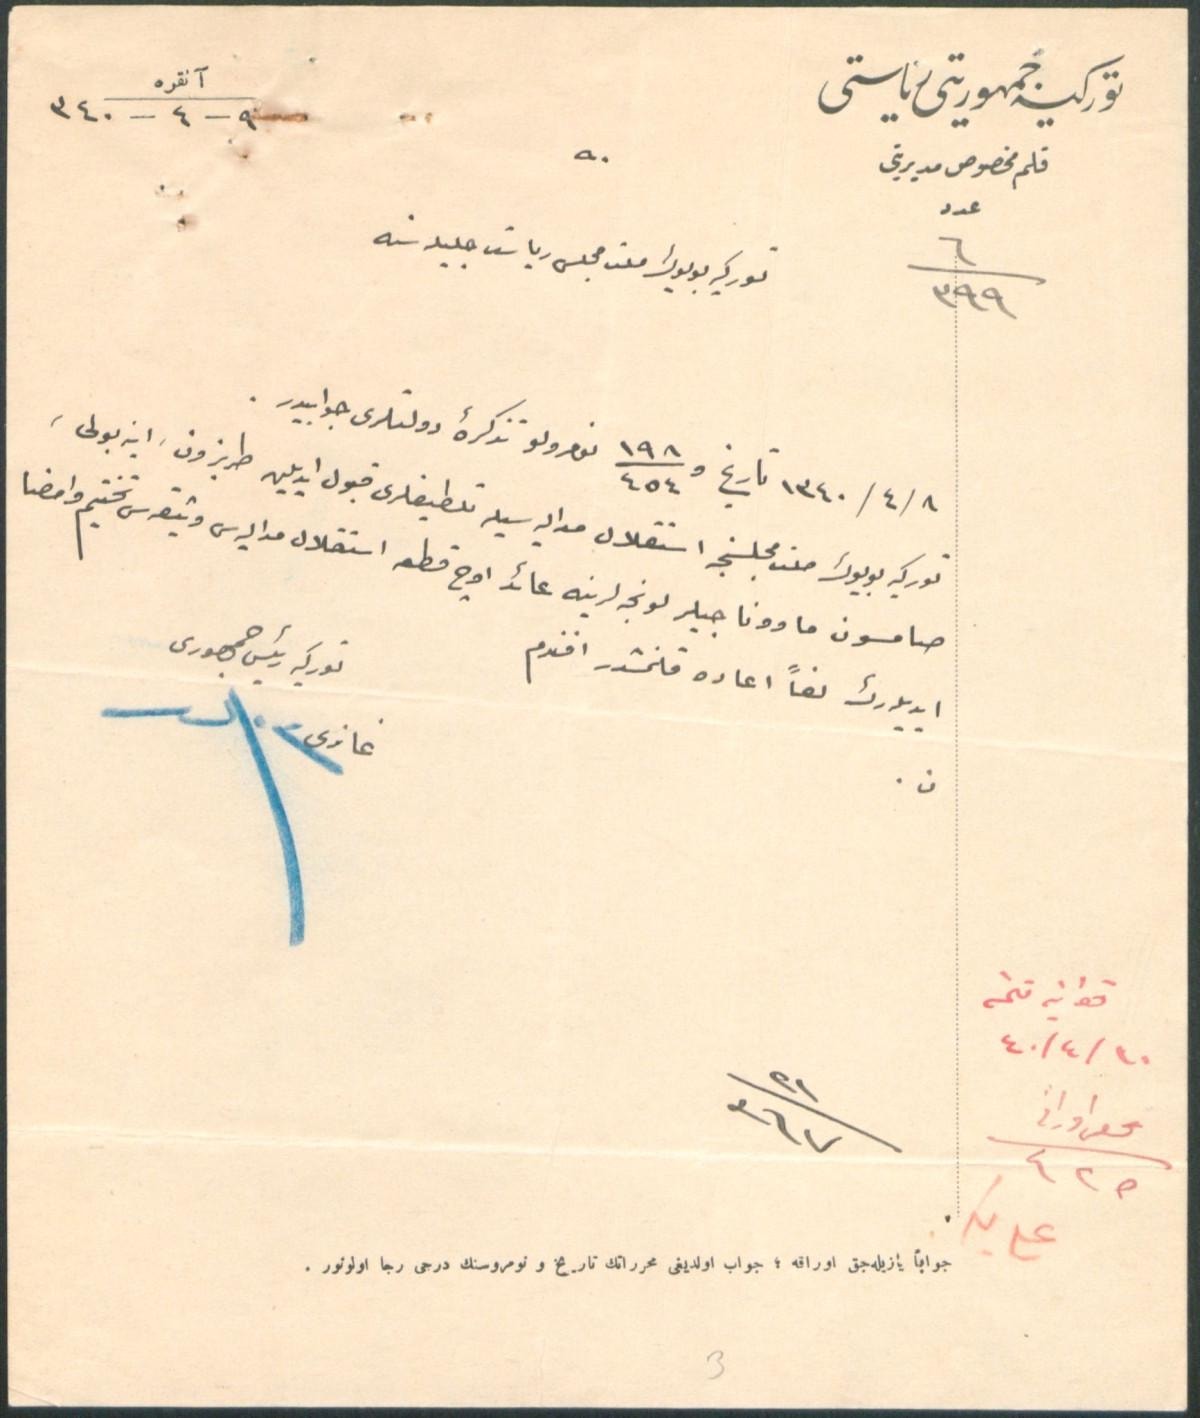 توركيه جمهوريتى رياستى
قلم مخصوص مديريتى
عدد
٦
٣٩٩
آنقره
٩ - ٤ - ٣٤٠
توركيه بويوك ملت مجلسى رياست جليله سنه
٨ /٤/ ١٣٤٠ تاريخ و ١٩٨/٤٥٤ نومرولو تذكرۀ دولتلرى جوابيدر .
توركيه بويوك ملت مجلسنجه استقلال مداليه سيله تلطيفلرى قبول ايديلن طربزون، اينه بولى،
صامسون ماوونا جيلر لونجه لرينه عائد اوچ قطعه استقلال مداليه سى وثيقه سى تختيم وامضا
ايديلرك لفاً اعاده قلنمشدر افندم
ن .
توركيه رئيس جمهورى
غازى م. كمال
قوانين قلمنه
٤٠/٤/١٠
اوراق
٤٢٥
على بك
٢١
٣٦٧
جواباً يازيله جق اوراقه ؛ جواب اولديغى محرراتك تاريخ و نومروسنك درجى رجا اولونور .
3